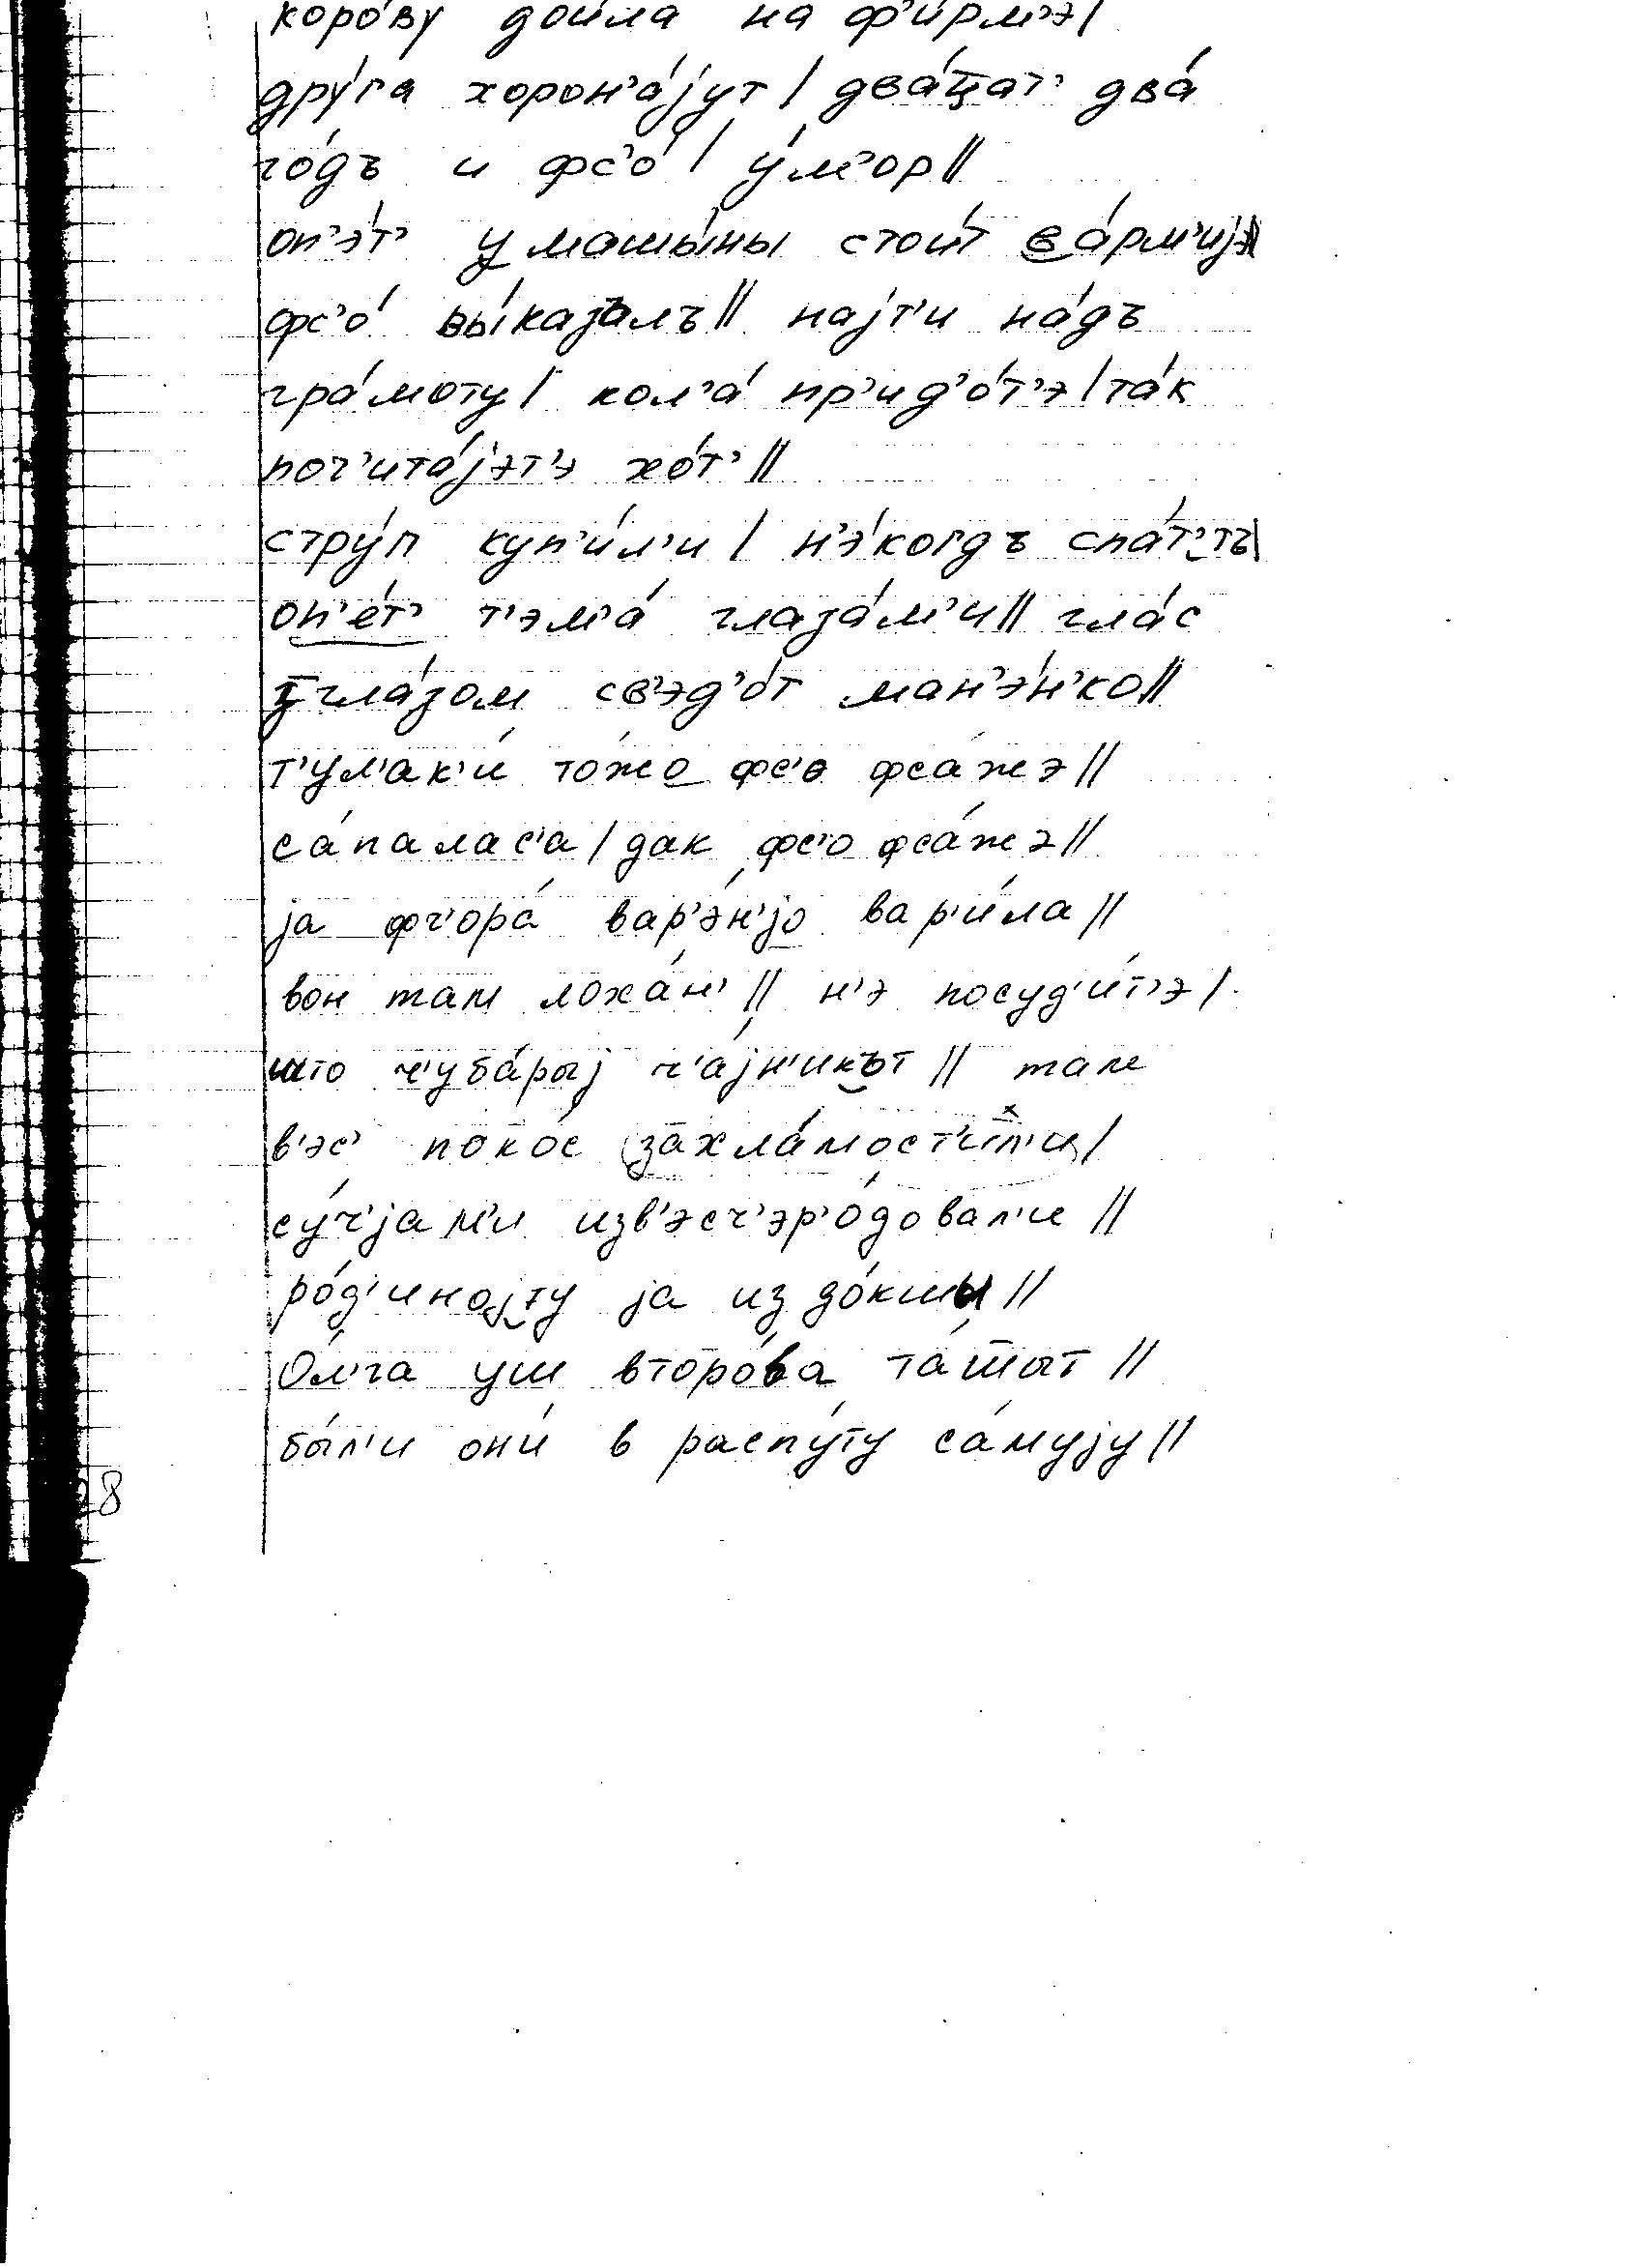 коро́ву дои́ла на ф'и́рм'э/
дру́га хорон'а́jут / два́цат' два́
го́дъ и фс'о́ / у́м'ор //
оп'э́т' у машы́ны стои́т в а́рм'иjэ//
фс'о́ вы́казалъ // наjт'и на́дъ
гра́моту / кол'а́ пр'ид'о́т'э / та́к
поч'ита́jэт'э хо́т' //
стру́п куп'и́л'и / н'э́когдъ спа́т'тъ/
оп'е́т' т'эм'а́ глаза́м'и // гла́с
з гла́зом св'эд'о́т ман'э́н'ко //
т'ум'ак'и́ то́жо фс'о фса́жэ //
са́палас'а / дак фс'о фса́жэ //
jа фч'ора́ вар'э́н'jо вар'и́ла //
вон там лоха́н' // н'э посуд'и́т'э /
што ч'уба́рыj ч'а́jн'икът // там
в'эс' поко́с захла́мост'ил'и /
су́ч'jам'и изв'эсч'эр'о́довал'и //
ро́д'иноjту jа из до́кшы //
О́л'га уш второ́ва та́шыт //
бы́л'и они́ в распу́ту са́муjу //
8